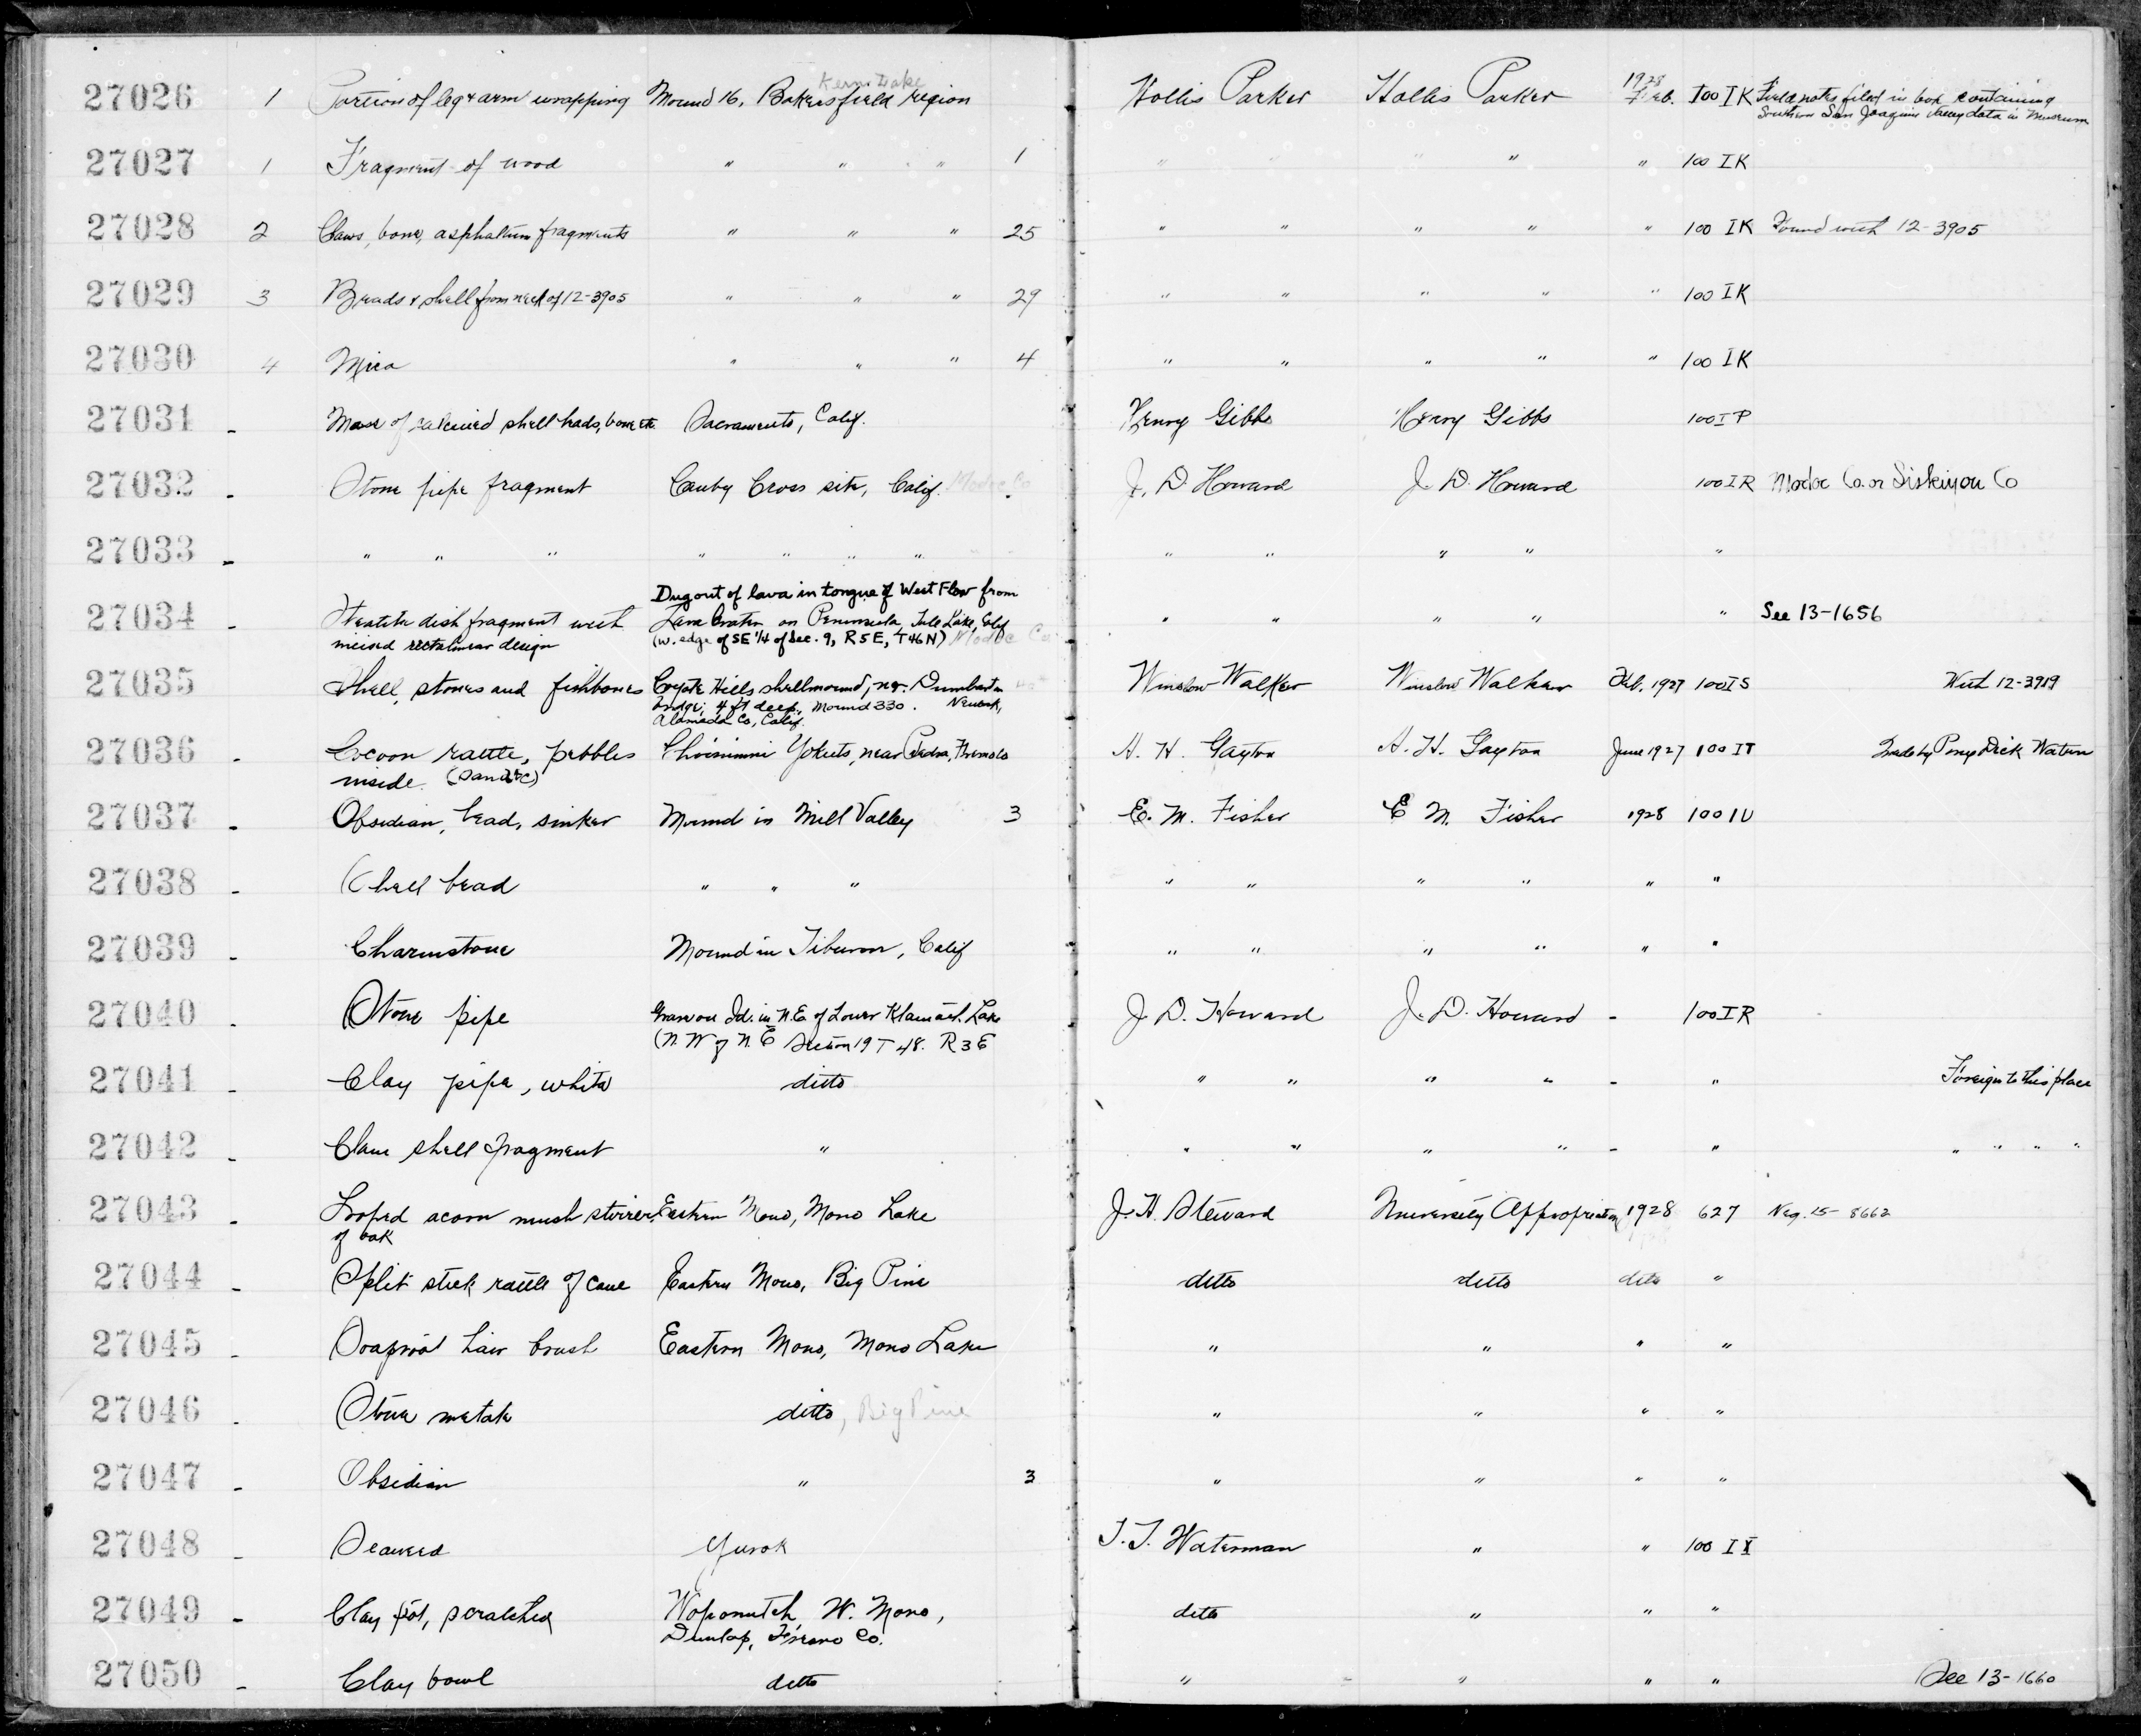 27026 1 Portion of leg & arm wrapping Mound 16, Bakersfield region Kern Lake Hollis Parker Hollis Parker 1928 Feb. 100 IK Field notes filed in box containing
Southern San Joaquin Valley data in Museum
27027 1 Fragment of wood " " " 1 " " " " " 100 IK
27028 2 Claws, bone, asphaltum fragments " " " 25 " " " " " 100 IK Found with 12-3905
27029 3 Beads & shell from neck of 12-3905 " " " 29 " " " " " 100 IK
27030 4 Mica " " " 4 " " " " " 100 IK
27031 - Mass of calcined shell beads, bone etc. Sacramento, Calif. Henry Gibbs Henry Gibbs 100 IP
27032 - Stone pipe fragment Canby Cross site, Calif. Modoc Co. J. D. Howard J. D. Howard 100 IR Modoc Co. or Siskiyou Co
27033 - " " " " " " " " " " " "
Dug out of lava in tongue of West Flow from
27034 Steatite dish fragment with Lava Crater on Peninsula, Tule Lake, Calif " " " " " See 13-1656
incised rectalinear design (W. edge of SE 1/4 of Sec. 9, R5E, T46N) Modoc Co.
27035 Shell, stones and fishbones Coyote Hills shellmound, nr. Dumbarton Winslow Walker Winslow Walker Feb. 1927 100 IS With 12-3919
bridge; 4 ft deep, Mound 330. Newark,
Alameda Co, Calif.
27036 - Cocoon rattle, pebbles Choinimni Yokuts, near Piedra, Fresno Co A. H. Gayton A. H. Gayton June 1927 100 IT Made by Pony Dick Watun
inside.
27037 - Obsidian, bead, sinker Mound in Mill Valley 3 E. M. Fisher E. M. Fisher 1928 100 IU
27038 - Shell bead " " " " " " " " "
27039 - Charmstone Mound in Tiburon, Calif " " " " " "
27040 - Stone pipe Grave on Id. in N.E. of Lower Klamath Lake J. D. Howard J. D. Howard - 100 IR
(N.W of N.E Section 19 T 48. R 3 E
27041 - Clay pipe, white ditto " " " " - " Foreign to this place
27042 - Clam shell fragment " " " " " - " " " " "
27043 - Looped acorn mush stirrer, Eastern Mono, Mono Lake J. H. Steward University Appropriation 1928 627 Neg. 15-8662
of oak
27044 - Split stick rattle of cane Eastern Mono, Big Pine ditto ditto ditto "
27045 - Soaproot hair brush Eastern Mono, Mono Lake " " " "
27046 - Stone metate ditto, Big Pine " " " "
27047 - Obsidian " 3 " " " "
27048 - Seaweed Yurok T. T. Waterman " " 100 IX
27049 - Clay pot, scratched Woponutch, W. Mono, ditto " " "
Dunlap, Fresno Co.
27050 - Clay bowl ditto " " " " See 13-1660